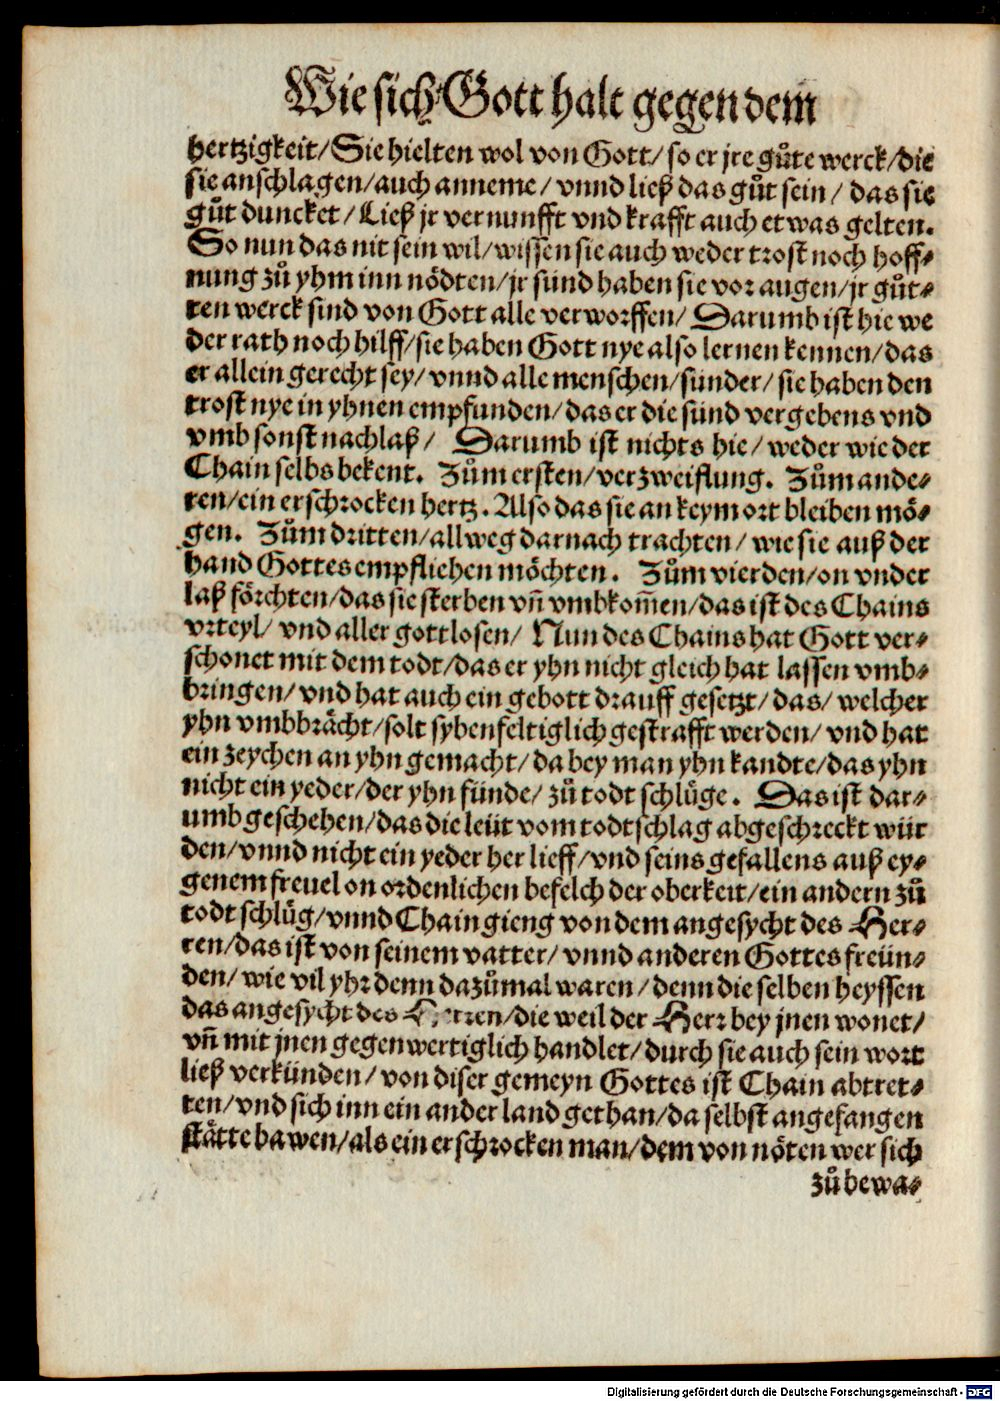 Wie sich Gott halt gegen dem
hertzigkeit/ Sie hielten wol von Gott/ so er jre gůte werck/ die
sie anschlagen/ auch anneme/ vnnd ließ das gůt sein/ das sie
gůt duncket/ Ließ jr vernunfft vnd krafft auch etwas gelten.
So nun das nit sein wil/ wissen sie auch weder trost noch hoff⸗
nung zů yhm inn nödten/ jr sünd haben sie vor augen/ jr gůt⸗
ten werck sind von Gott alle verworffen/ Darumb ist hie we
der rath noch hilff/ sie haben Gott nye also lernen kennen/ das
er allein gerecht sey/ vnnd alle menschen/ sünder/ sie haben den
trost nye in yhnen empfunden/ das er die sünd vergebens vnd
vmb sonst nachlaß/ Darumb ist nichts hie/ weder wie der
Chain selbs bekent. Zům ersten/ verzweiflung. Zům ande⸗
ren/ ein erschrocken hertz. Also das sie an keym ort bleiben mö⸗
gen. Zům dritten/ allweg darnach trachten/ wie sie auß der
hand Gottes empfliehen möchten. Zům vierden/ on vnder
laß förchten/ das sie sterben vñ vmbkom̃en/ das ist des Chains
vrteyl/ vnd aller gottlosen/ Nun des Chains hat Gott ver⸗
schonet mit dem todt/ das er yhn nicht gleich hat lassen vmb⸗
bringen/ vnd hat auch ein gebott drauff gesetzt/ das/ welcher
yhn vmbbrächt/ solt sybenfeltiglich gestrafft werden/ vnd hat
ein zeychen an yhn gemacht/ da bey man yhn kandte/ das yhn
nicht ein yeder/ der yhn fünde/ zů todt schlüge. Das ist dar⸗
umb geschehen/ das die leüt vom todtschlag abgeschreckt wür
den/ vnnd nicht ein yeder her lieff/ vnd seins gefallens auß ey⸗
genem freuel on ordenlichen befelch der oberkeit/ ein andern zů
todt schlüg/ vnnd Chain gieng von dem angesycht des Her⸗
ren/ das ist von seinem vatter/ vnnd anderen Gottes freün⸗
den/ wie vil yhr denn dazůmal waren/ denn die selben heyssen
das angesycht des Herren/ die weil der Herr bey jnen wonet/
vñ mit jnen gegenwertiglich handlet/ durch sie auch sein wort
ließ verkünden/ von diser gemeyn Gottes ist Chain abtret⸗
ten/ vnd sich inn ein ander land gethan/ da selbst angefangen
stätte bawen/ als ein erschrocken man/ dem von nöten wer sich
zů bewa⸗
Digitalisierung gefördert durch die Deutsche Forschungsgemeinschaft - DFG